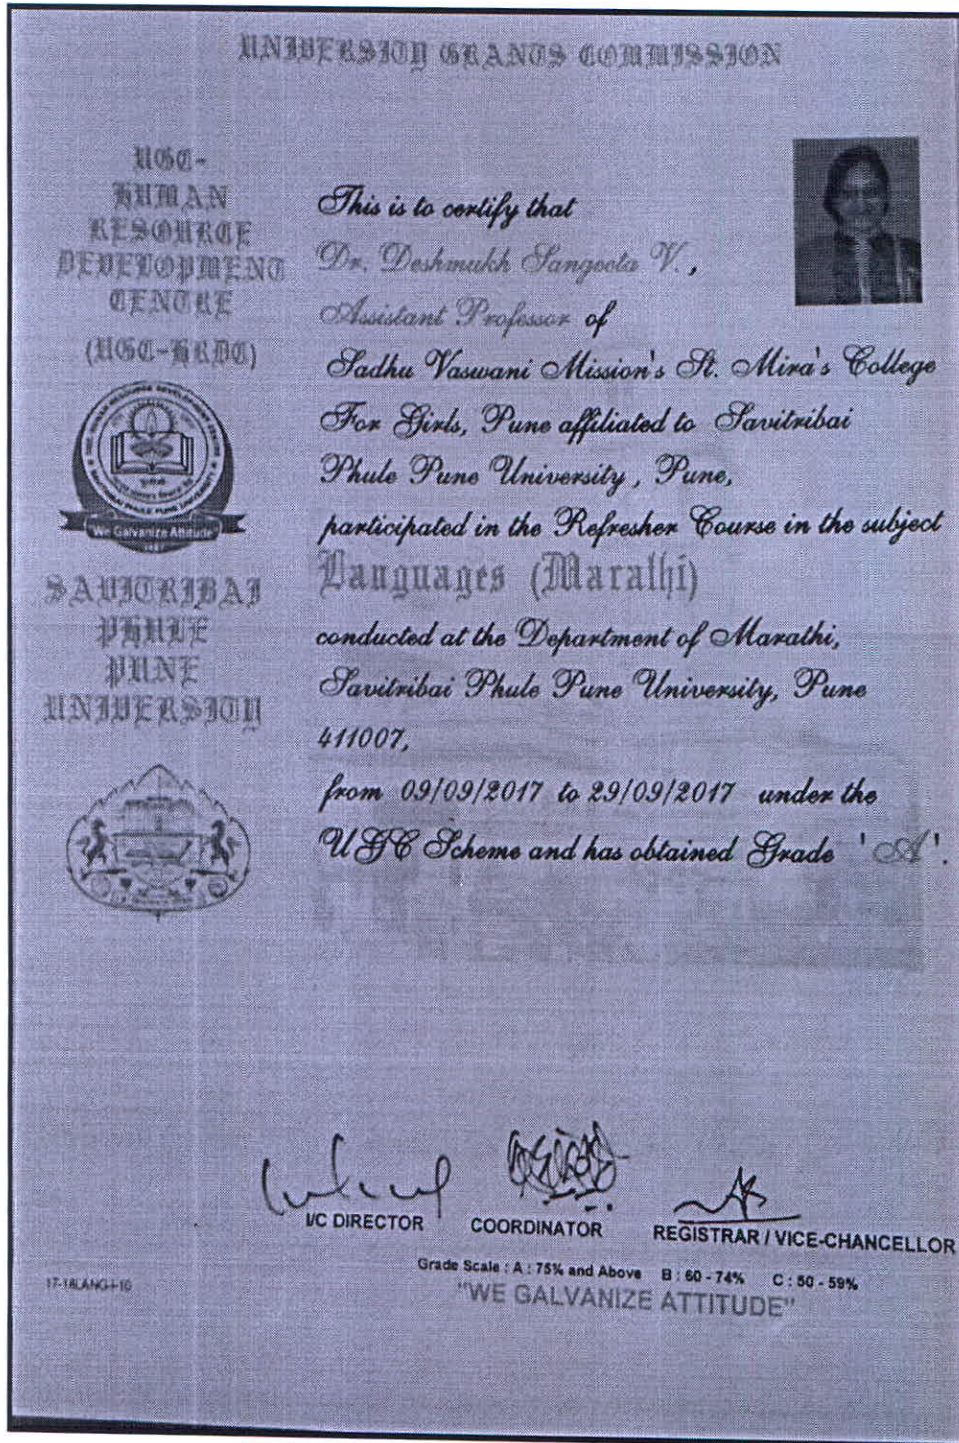 UNIVERSITY GRANTS COMMISSION
UGC-
HUMAN
RESOURCE
DEVELOPMENT
CENTRE
(UGC-HRDC)
We Galvanize Attitude
SAVITRIBAI
PHULE
PUNE
UNIVERSITY
This is to certify that
Dr. Deshmukh Sangeeta V.,
Assistant Professor of
Sadhu Vaswani Mission's St. Mira's College
For Girls, Pune affiliated to Savitribai
Phule Pune University, Pune,
participated in the Refresher Course in the subject
Languages (Marathi)
conducted at the Department of Marathi,
Savitribai Phule Pune University, Pune
411007,
from 09/09/2017 to 29/09/2017 under the
UGC Scheme and has obtained Grade 'A'.
I/C DIRECTOR
COORDINATOR
REGISTRAR / VICE-CHANCELLOR
Grade Scale : A : 75% and Above B : 60 - 74% C : 50 - 59%
"WE GALVANIZE ATTITUDE"
17-18LANG-I-10